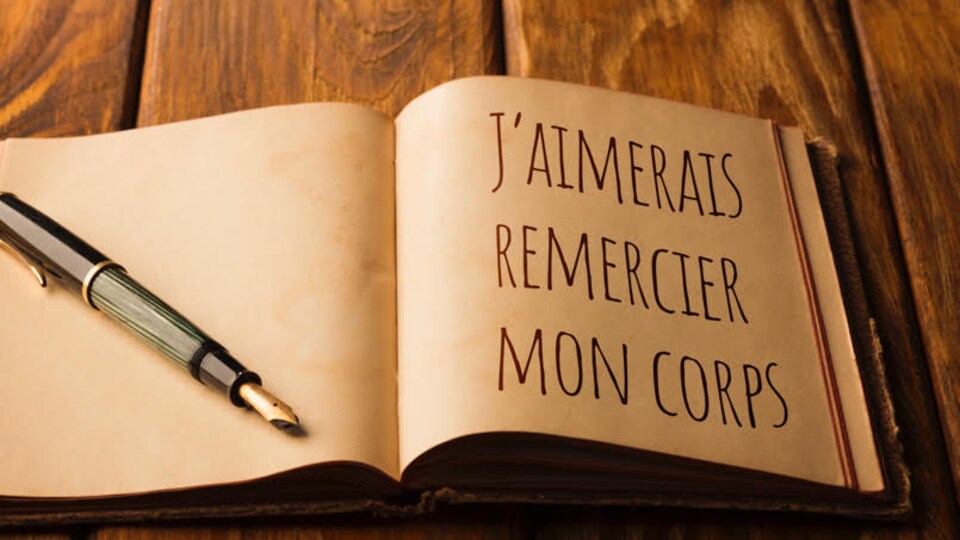 J'AIMERAIS
REMERCIER
MON CORPS